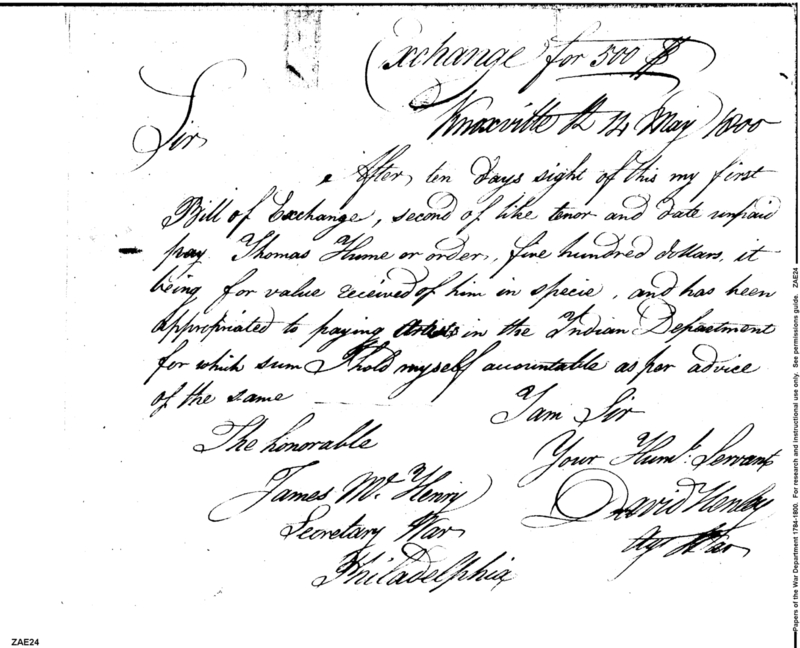 Exchange for 500 $
Knoxville 14 May 1800
Sir
After ten days sight of this my first
Bill of Exchange, second of like tenor and date unpaid
pay Thomas Hume or order, five hundred dollars, it
being for value received of him in specie, and has been
appropriated to paying in the Indian Department
for which sum I hold myself accountable as per advice
of the same
I am Sir
The honorable
Your Humt. Servant
James Mc.Henry
David Henley
Secretary War
Agt War
Philadelphia
ZAE24
Papers of the War Department 1784-1800. For research and instructional use only. See permissions guide. ZAE24